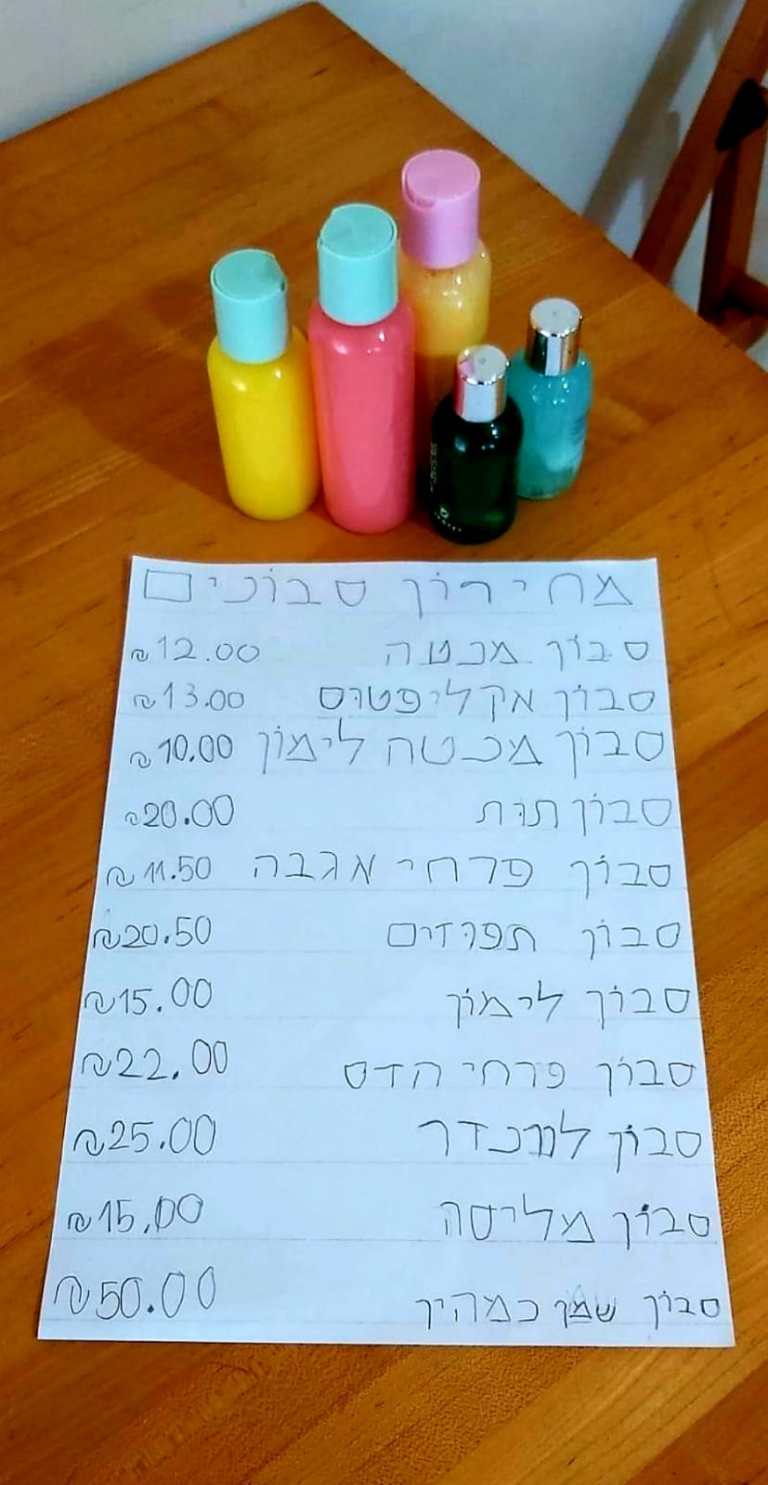 מחירון סבונים
סבון מנטה ₪12.00
סבון אקליפטוס ₪13.00
סבון מנטה לימון ₪10.00
סבון תות ₪20.00
סבון פרחי אגבה ₪11.50
סבון תפוזים ₪20.50
סבון לימון ₪15.00
סבון פרחי הדס ₪22.00
סבון לוונדר ₪25.00
סבון מליסה ₪15.00
סבון שמן כמהין ₪50.00